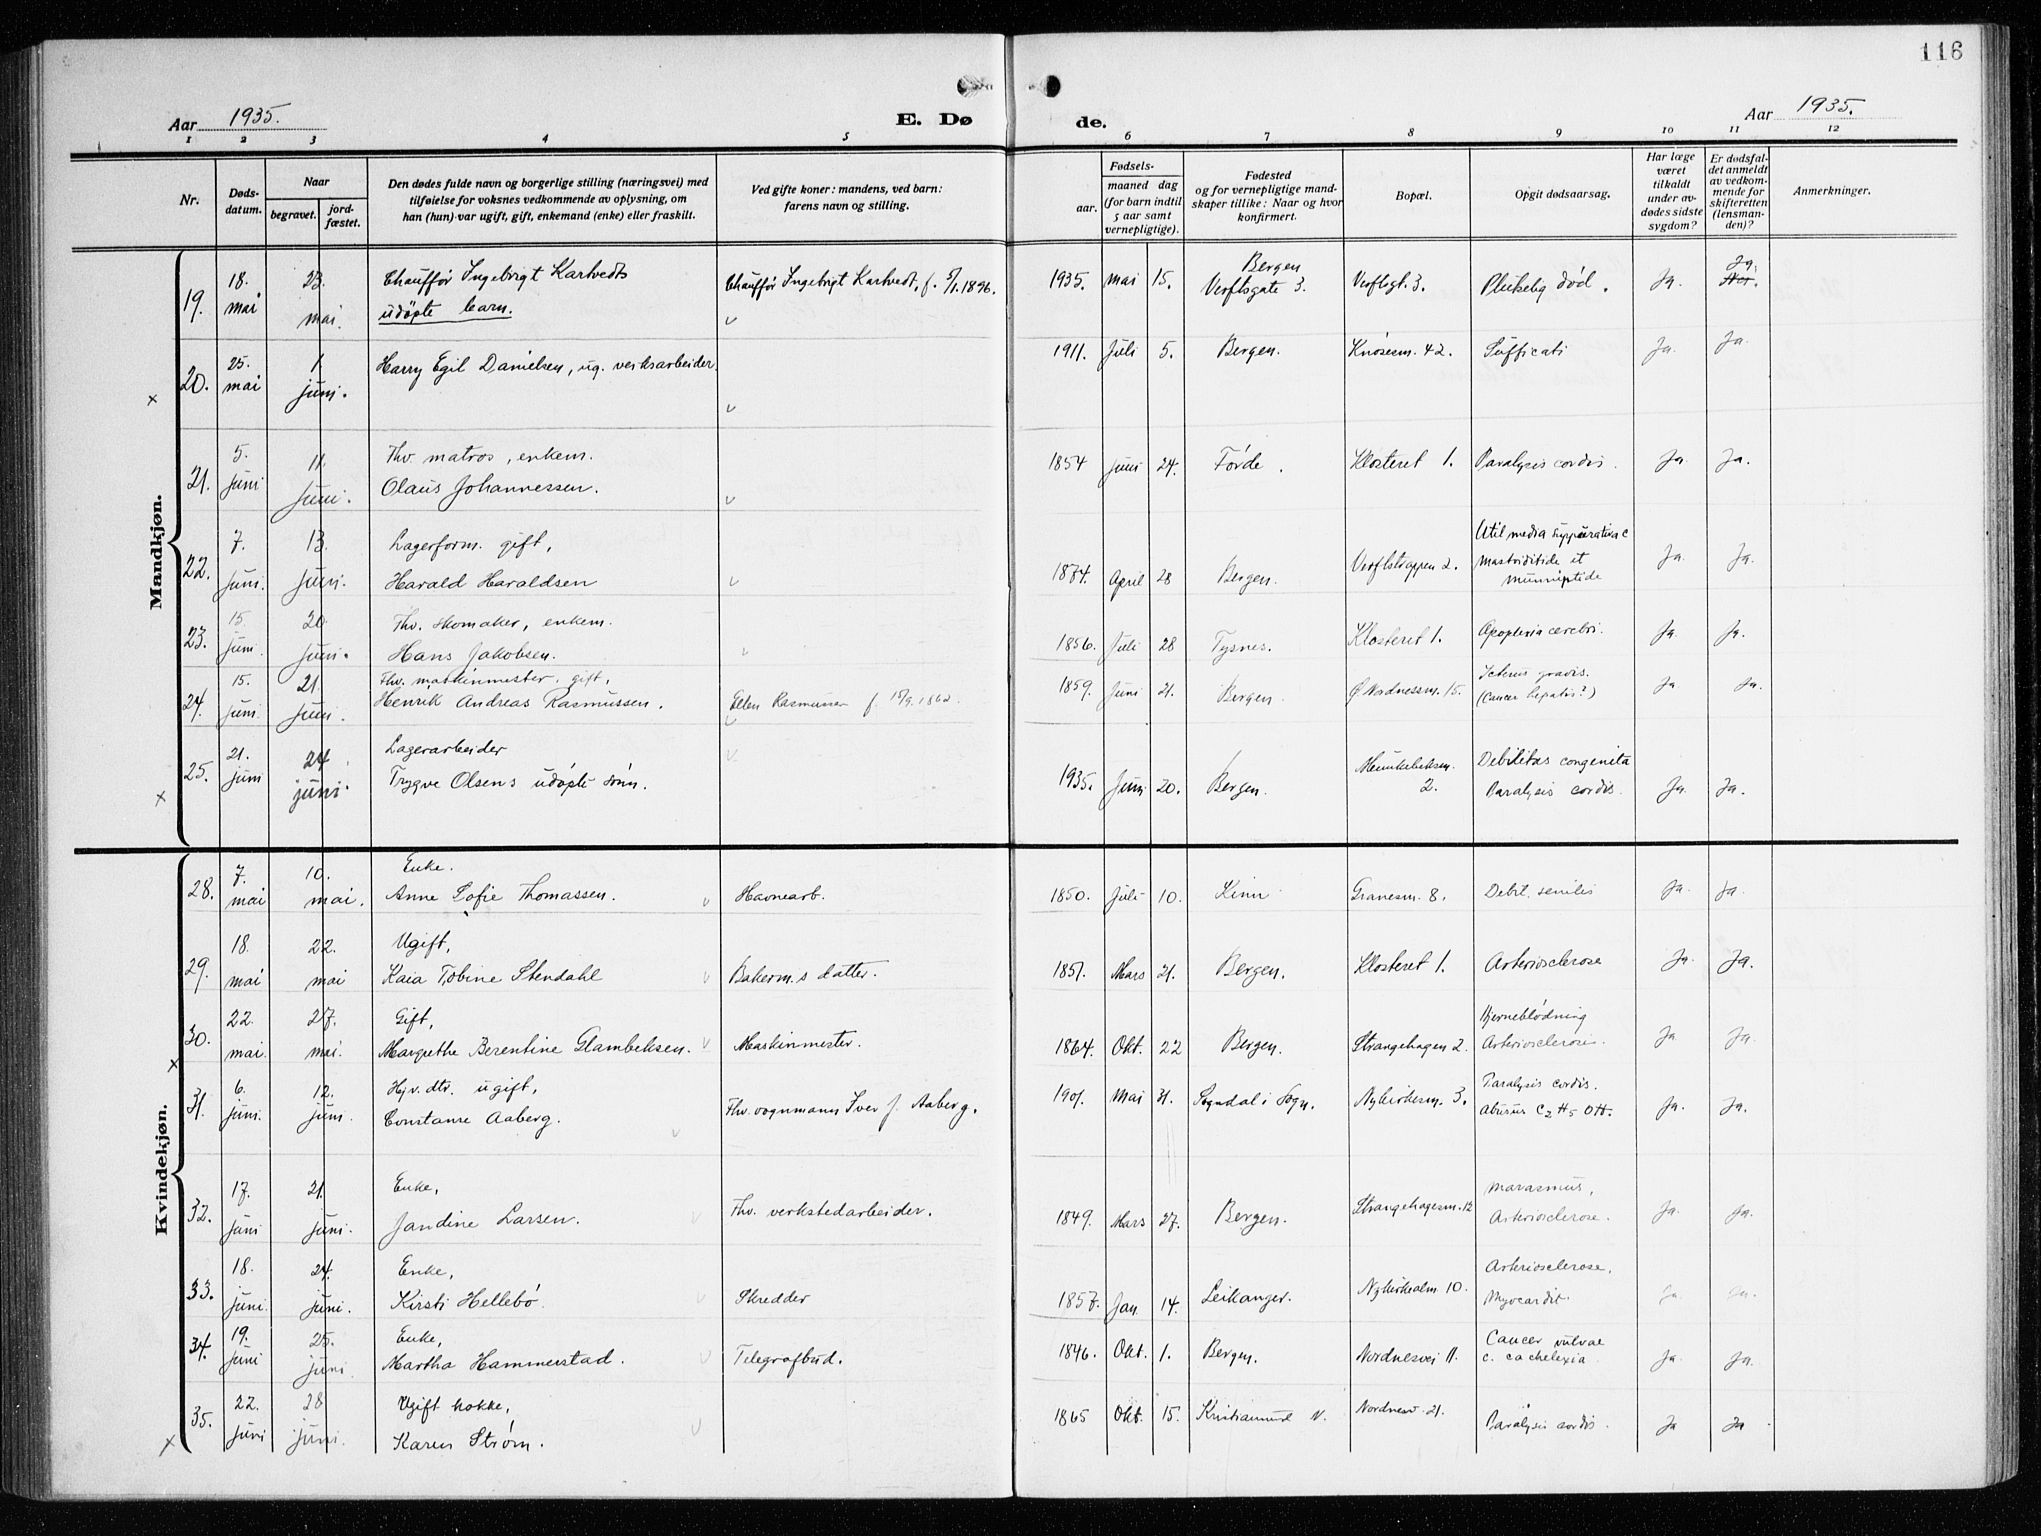 116
Aar 1935.
E. Dø
de.
Aar 1935.
1 2 3 4 5 6 7 8 9 10 11 12
Nr.
Døds-
datum.
Naar
begravet.
jord-
fæstet.
Den dødes fulde navn og borgerlige stilling (næringsvei) med
tilføielse for voksnes vedkommende av oplysning, om
han (hun) var ugift, gift, enkemand (enke) eller fraskilt.
Ved gifte koner: mandens, ved barn:
farens navn og stilling.
Fødsels-
aar.
maaned dag
(for barn indtil
5 aar samt
vernepligtige).
Fødested
og for vernepligtige mand-
skaper tillike: Naar og hvor
konfirmert.
Bopæl.
Opgit dødsaarsag.
Har læge
været
tilkaldt
under av-
dødes sidste
sygdom?
Er dødsfal-
det anmeldt
av vedkom-
mende for
skifteretten
(lensman-
den)?
Anmerkninger.
Mandkjøn.
19. 18. mai 23. mai.
Chauffør Ingebrigt Kartvedts
udøpte barn.
Chauffør Ingebrigt Kartvedt, f. 5/1.1896.
1935. mai 15. Bergen
Verftsgate 3. Verftsgt. 3. Plutselig død. Ja. Ja.
20. 25. mai 1. juni.
Harry Egil Danielsen, ug. verksarbeider.
1911. Juli 5. Bergen. Knøsesm. 42. Sufficati Ja. Ja.
21. 5. juni 11. juni.
Fhv. matros, enkem.
Olaus Johannessen.
1854 juni 24. Førde. Klosteret 1. Paralysis cordis. Ja. Ja.
22. 7. juni. 13. juni.
Lagerform. gift,
Harald Haraldsen
1874. April 28 Bergen. Verftstrappen 2.
media suppurativa c
mastoiditide et
Ja. Ja.
23. 15. juni. 20. juni.
Fhv. skomaker, enkem.
Hans Jakobsen.
1856. Juli 28 Tysnes. Klosteret 1. Apoplexia cerebri. Ja. Ja.
24. 15. juni 21. juni.
Fhv. maskinmester, gift,
Henrik Andreas Rasmussen.
Ellen Rasmussen f. 15/9.1862.
1859. Juni 21. Bergen. Ø. Nordnessm. 15. Icterus gravis.
(Cancer hepatis?) Ja Ja.
25. 21. juni 24 juni.
Lagerarbeider
Trygve Olsens udøpte sønn.
1935. Juni 20. Bergen. 2.
Debilitas congenita
Paralysis cordis. Ja. Ja.
Kvindekjøn.
28. 7. mai 10. mai.
Enke.
Anne Sofie Thomassen.
Havnearb.
1850. Juli 10. Kinn Granesm. 8. Debil. senilis Ja. Ja.
29. 18. mai 22. mai
Ugift,
Kaia Tobine Stendahl
Bakerm.s datter.
1851. Mars 21. Bergen. Klosteret 1. Arteriosclerose Ja. Ja.
30. 22. mai. 27. mai.
Gift,
Margrethe Berentine Glambeksen.
Maskinmester.
1864. Okt. 22 Bergen. Strangehagen 2. Hjerneblødning
Arteriosclerose. Ja Ja.
31. 6. juni. 12. juni.
Hjv. dtr. ugift,
Constanse Aaberg.
Fhv. vognmann Iver J. Aaberg.
1901. Mai 31. Sogndal i Sogn. Nykirkesm. 3. Paralysis cordis.
Abusus C2 H5 OH. Ja. Ja.
32. 17. juni 21. juni.
Enke,
Jandine Larsen.
Fhv. verkstedarbeider.
1849. Mars 27. Bergen. Strangehagesm. 12 Marasmus,
Arteriosclerose. Ja. Ja.
33. 18. juni. 24. juni.
Enke,
Kirsti Hellebø.
Skredder
1857. Jan. 14. Leikanger. Nykirkealm 10. Arteriosclerose,
Myocardit. Ja. Ja.
34. 19. juni 25. juni
Enke,
Martha Hammerstad.
Telegrafbud.
1846. Okt. 1. Bergen. Nordnesvei 11. Cancer vulvae
c. cachelexia. Ja. Ja.
35. 22. juni 28 juni.
Ugift kokke,
Karen Strøm.
1865 Okt. 15. Kristiansund N. Nordnesv. 21. Paralysis cordis. Ja Ja